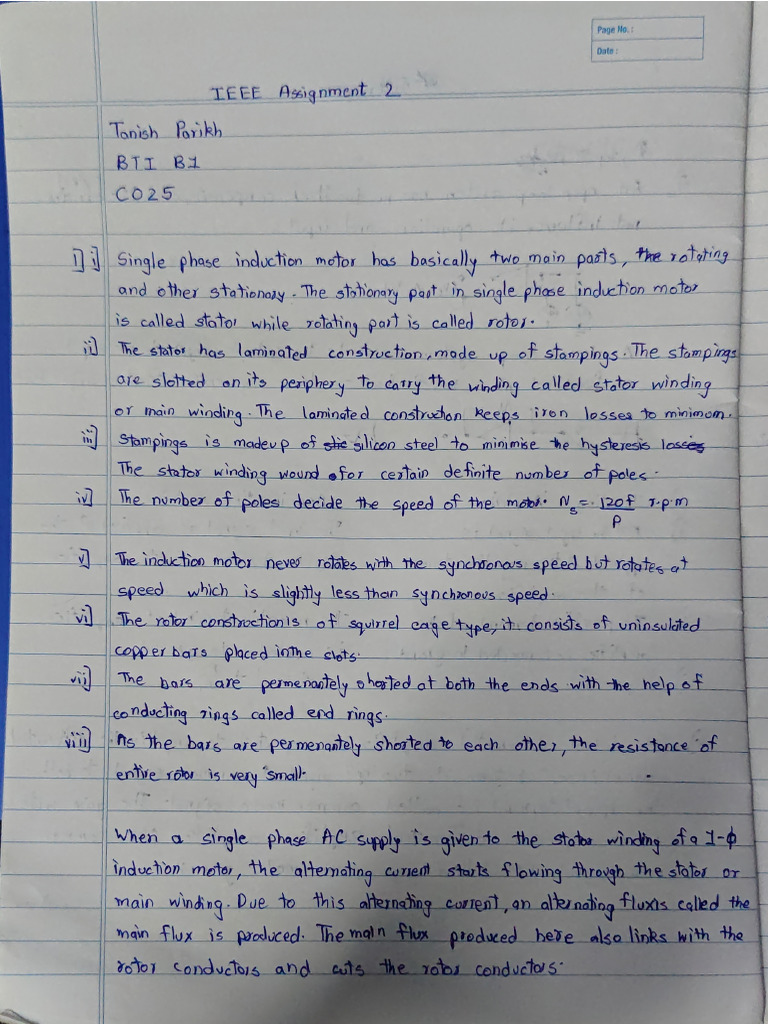 Page No. :
Date :
IEEE Assignment 2
Tanish Parikh
BTI B1
C025
1] i] Single phase induction motor has basically two main parts, the rotating
and other stationary. The stationary part in single phase induction motor
is called stator while rotating part is called rotor.
ii] The stator has laminated construction, made up of stampings. The stampings
are slotted on its periphery to carry the winding called stator winding
or main winding. The laminated construction keeps iron losses to minimum.
iii] Stampings is madeup of silicon steel to minimise the hysteresis losses
The stator winding wound for certain definite number of poles.
iv] The number of poles decide the speed of the motor. Ns = 120f/P r.p.m
v] The induction motor never rotates with the synchronous speed but rotates at
speed which is slightly less than synchronous speed.
vi] The rotor construction is of squirrel cage type, it consists of uninsulated
copper bars placed in the slots.
vii] The bars are permenantely shorted at both the ends with the help of
conducting rings called end rings.
viii] As the bars are permenantely shorted to each other, the resistance of
entire rotor is very small.
When a single phase AC supply is given to the stator winding of a 1-ϕ
induction motor, the alternating current starts flowing through the stator or
main winding. Due to this alternating current, an alternating flux is called the
main flux is produced. The main flux produced here also links with the
rotor conductors and cuts the rotor conductors.